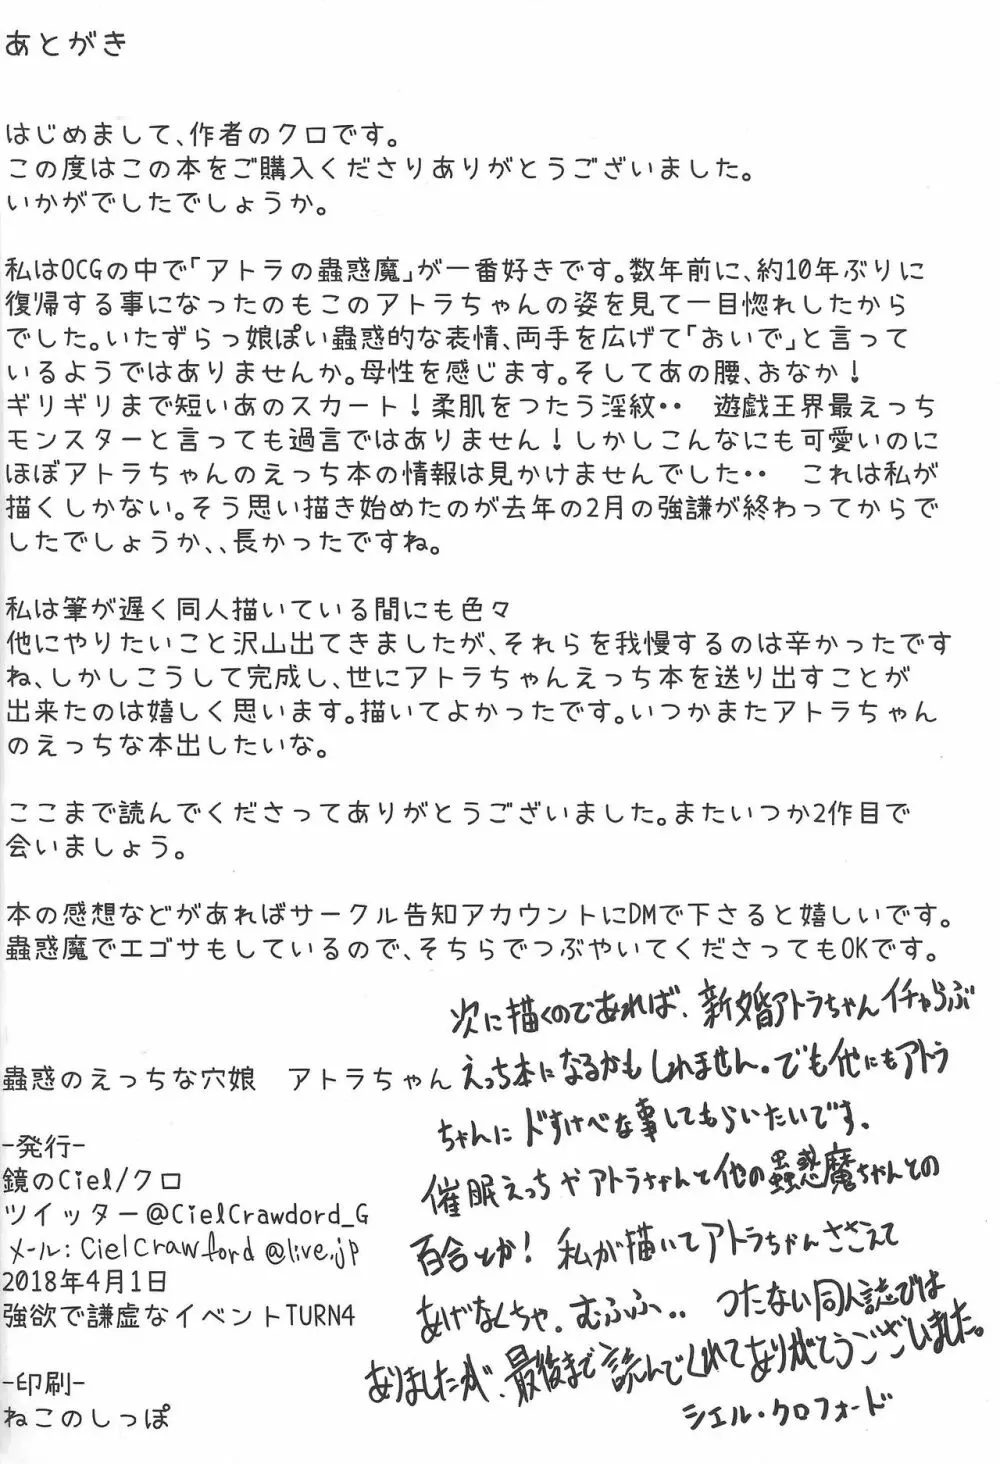 あとがき
はじめまして、作者のクロです。
この度はこの本をご購入くださりありがとうございました。
いかがでしたでしょうか。
私はOCGの中で「アトラの蟲惑魔」が一番好きです。数年前に、約10年ぶりに
復帰する事になったのもこのアトラちゃんの姿を見て一目惚れしたから
でした。いたずらっ娘ぽい蟲惑的な表情、両手を広げて「おいで」と言って
いるようではありませんか。母性を感じます。そしてあの腰、おなか！
ギリギリまで短いあのスカート！柔肌をつたう淫紋‥　遊戯王界最えっち
モンスターと言っても過言ではありません！しかしこんなにも可愛いのに
ほぼアトラちゃんのえっち本の情報は見かけませんでした‥　これは私が
描くしかない。そう思い描き始めたのが去年の2月の強謙が終わってからで
したでしょうか、、長かったですね。
私は筆が遅く同人描いている間にも色々
他にやりたいこと沢山出てきましたが、それらを我慢するのは辛かったです
ね、しかしこうして完成し、世にアトラちゃんえっち本を送り出すことが
出来たのは嬉しく思います。描いてよかったです。いつかまたアトラちゃん
のえっちな本出したいな。
ここまで読んでくださってありがとうございました。またいつか2作目で
会いましょう。
本の感想などがあればサークル告知アカウントにDMで下さると嬉しいです。
蟲惑魔でエゴサもしているので、そちらでつぶやいてくださってもOKです。
次に描くのであれば、新婚アトラちゃんイチャらぶ
えっち本になるかもしれません。でも他にもアトラ
ちゃんにドすけべな事してもらいたいです。
催眠えっちやアトラちゃんと他の蟲惑魔ちゃんとの
百合とか！私が描いてアトラちゃんささえて
あげなくちゃ。むふふ‥　つたない同人誌では
ありましたが、最後まで読んでくれてありがとうございました。
シエル・クロフォード
蟲惑のえっちな穴娘　アトラちゃん
-発行-
鏡のCiel/クロ
ツイッター@CielCrawdord_G
メール：CielCrawford@live.jp
2018年4月1日
強欲で謙虚なイベントTURN4
-印刷-
ねこのしっぽ